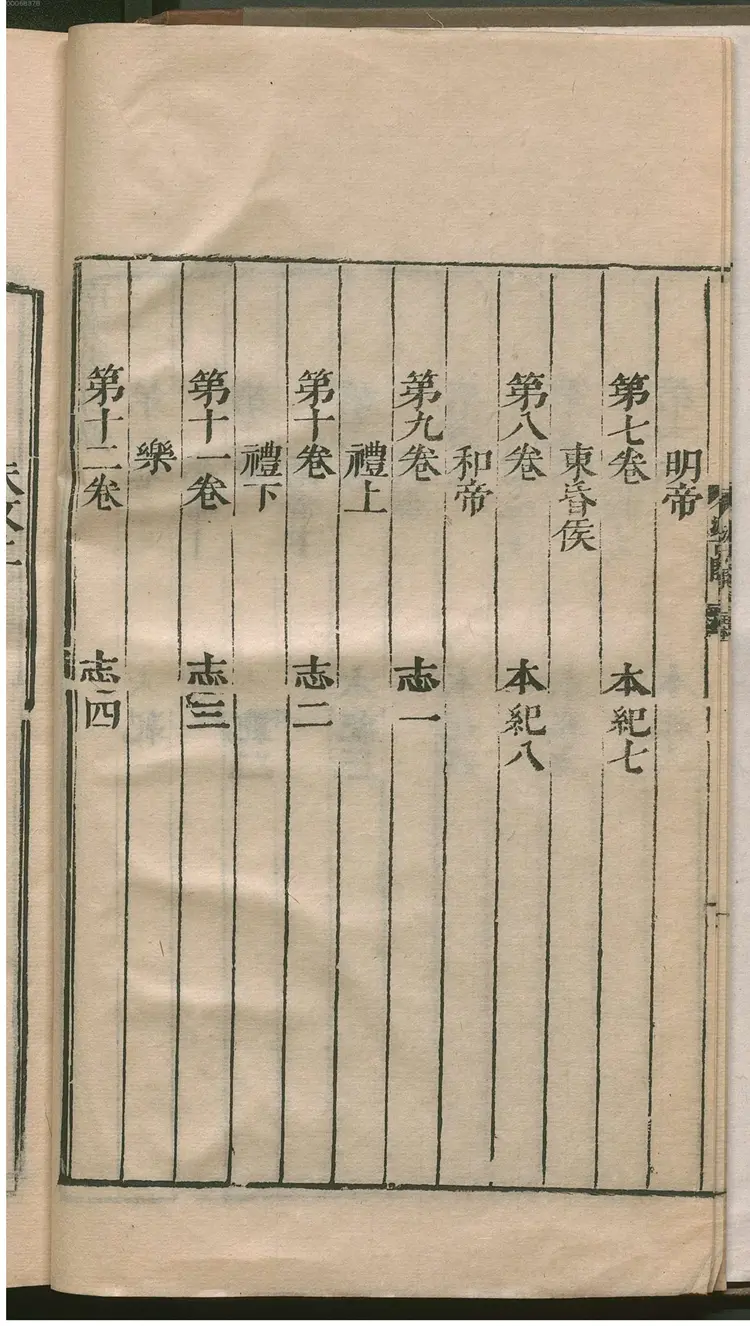 明帝
第七卷 本紀七
東昏侯
第八卷 本紀八
和帝
第九卷 志一
禮上
第十卷 志二
禮下
第十一卷 志三
樂
第十二卷 志四
00068378